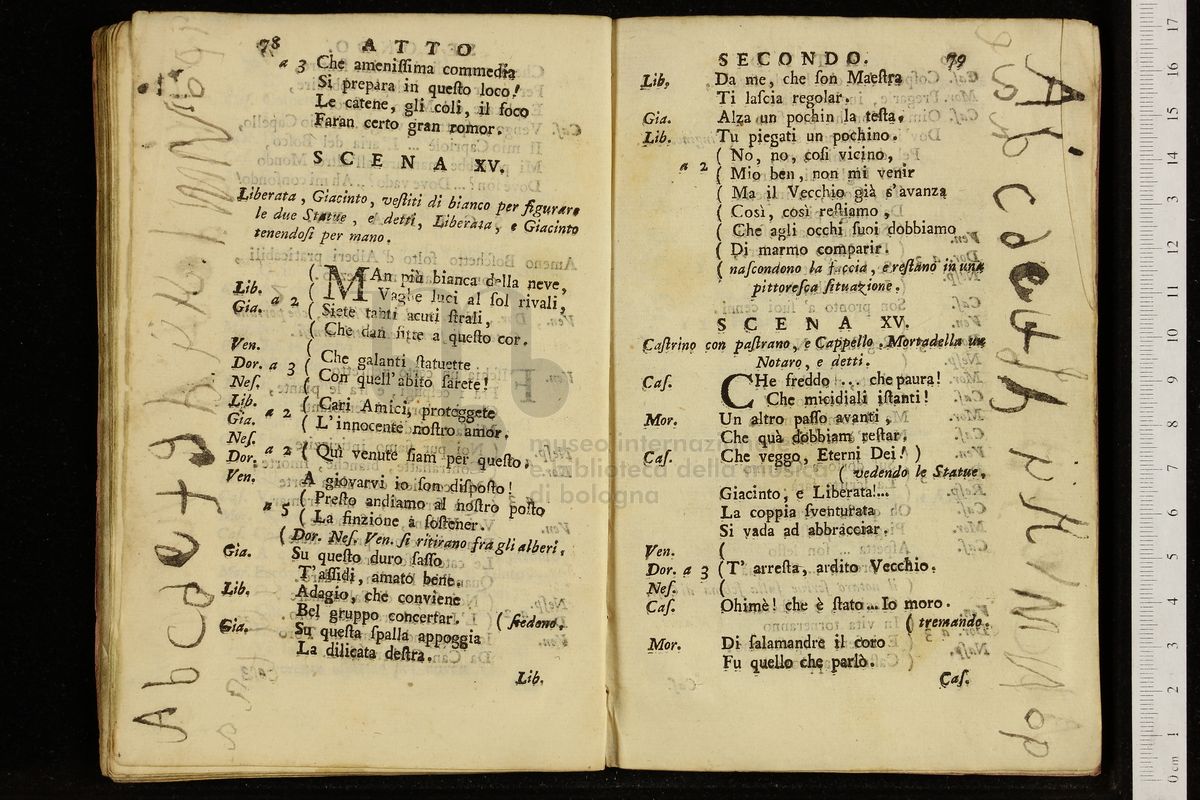 78 ATTO
a 3 Che ameniſſima commedia
Si prepara in queſto loco!
Le catene, gli coli, il foco
Faran certo gran romor.
SCENA XV.
Liberata, Giacinto, veſtiti di bianco per figurare
le due Statue, e detti, Liberata, e Giacinto
tenendoſi per mano.
( MAn più bianca della neve,
Lib. a 2 ( Vaghe luci al ſol rivali,
Gia. ( Siete tanti acuti ſtrali,
( Che dan fitte a queſto cor.
Ven. ( Che galanti ſtatuette
Dor. a 3 ( Con quell'abito ſarete!
Neſ.
Lib. a 2 ( Cari Amici, proteggete
Gia. ( L'innocente noſtro amor.
Neſ. a 2 ( Quì venute ſiam per queſto.
Dor.
Ven. A giovarvi io ſon diſpoſto!
a 5 ( Preſto andiamo al noſtro poſto
( La finzione a ſoſtener.
( Dor. Neſ. Ven. ſi ritirano fra gli alberi.
Gia. Su queſto duro ſaſſo
T'aſſidi, amato bene.
Lib. Adagio, che conviene
Bel gruppo concertar. ( ſiedono.
Gia. Su queſta ſpalla appoggia
La dilicata deſtra.
Lib.
Abcdefg
SECONDO. 79
Lib. Da me, che ſon Maeſtra
Ti laſcia regolar.
Gia. Alza un pochin la teſta.
Lib. Tu piegati un pochino.
( No, no, coſi vicino,
a 2 ( Mio ben, non mi venir
( Ma il Vecchio già s'avanza
( Così, così reſtiamo,
( Che agli occhi ſuoi dobbiamo
( Di marmo comparir.
( naſcondono la faccia, e reſtano in una
pittoreſca ſituazione.
SCENA XV.
Caſtrino con paſtrano, e Cappello. Mortadella un
Notaro, e detti.
Caſ. CHe freddo .... che paura!
Che micidiali iſtanti!
Mor. Un altro paſſo avanti,
Che quà dobbiam reſtar.
Caſ. Che veggo, Eterni Dei! )
( vedendo le Statue.
Giacinto, e Liberata!...
La coppia ſventurata
Si vada ad abbracciar.
Ven. (
Dor. a 3 ( T' arreſta, ardito Vecchio.
Neſ. (
Caſ. Ohimè! che è ſtato... Io moro.
( tremando.
Mor. Di ſalamandre il coro
Fu quello che parlò.
Caſ.
museo internazionale
e biblioteca della musica
di bologna
0 cm 1 2 3 4 5 6 7 8 9 10 11 12 13 14 15 16 17